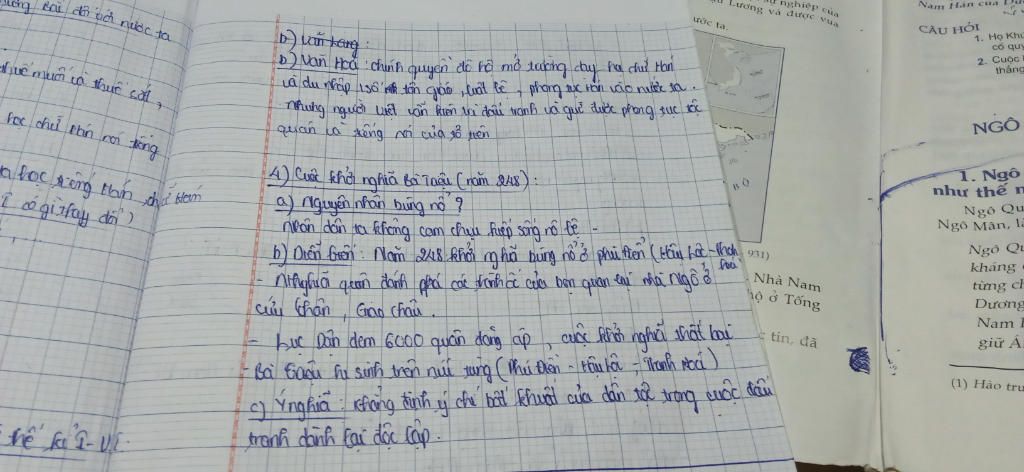 b) Văn hóa: chính quyền đô hộ mở trường dạy học chữ Hán
và du nhập tôn giáo, luật lệ, phong tục Hán vào nước ta.
nhưng người Việt vẫn kiên trì đấu tranh và giữ được phong tục tập
quán và tiếng nói của tổ tiên
4) Cuộc khởi nghĩa Bà Triệu (năm 248):
a) Nguyên nhân bùng nổ?
Nhân dân ta không cam chịu kiếp sống nô lệ
b) Diễn biến: Năm 248 khởi nghĩa bùng nổ ở phú Điền (Hậu Lộc - Thanh Hoá)
- Nghĩa quân đánh phá các thành ấp của bọn quan lại nhà Ngô ở
Cửu Chân, Giao Châu.
- Lục Dận đem 6000 quân đàn áp, cuộc khởi nghĩa thất bại
- Bà Triệu hi sinh trên núi Tùng (Phú Điền - Hậu Lộc - Thanh Hoá)
c) Ý nghĩa: khẳng định ý chí bất khuất của dân tộc trong cuộc đấu
tranh dành lại độc lập.
đối với nước ta
học chữ Hán nói tiếng
thế kỉ I - VI
nghiệp của
Lương và được vua
ước ta.
931)
Nhà Nam
hộ ở Tống
tin, đã
Nam Hán của
CÂU HỎI
1. Họ Khú
có quy
2. Cuộc
thắng
NGÔ
1. Ngô
như thế n
Ngô Qu
Ngô Mân, là
Ngô Qu
kháng
từng ch
Dương
Nam
giữ Á
(1) Hào trư